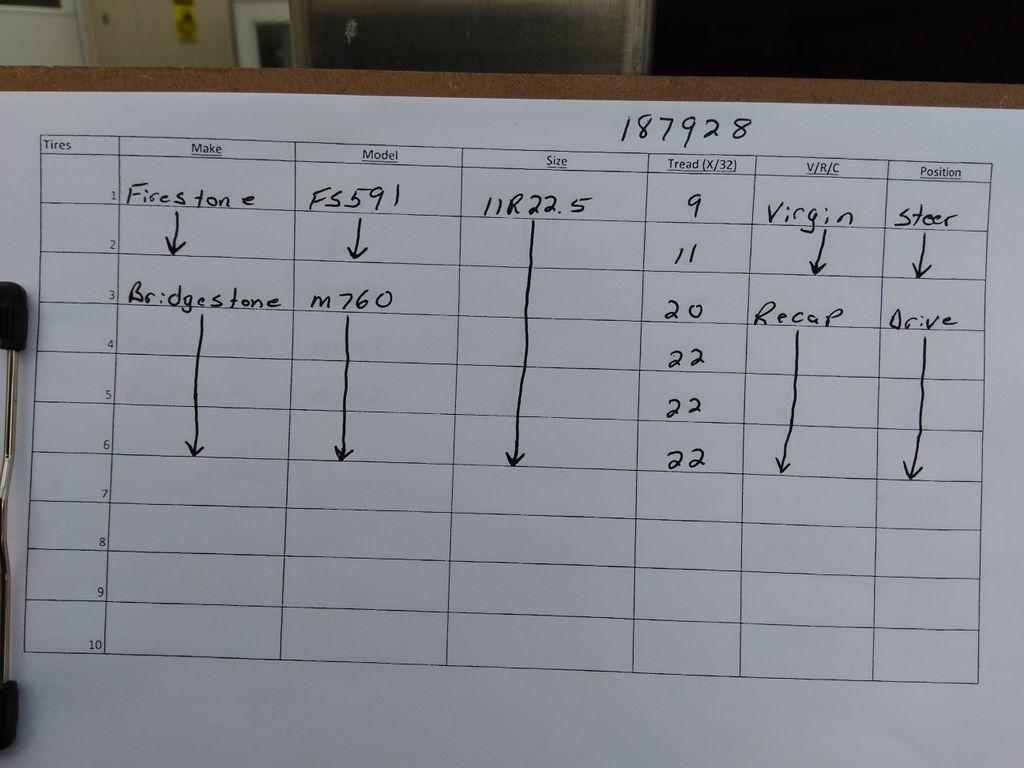 187928
Tires Make Model Size Tread (X/32) V/R/C Position
1 Firestone FS591 11R22.5 9 Virgin Steer
2 11
3 Bridgestone m760 20 Recap Drive
4 22
5 22
6 22
7
8
9
10